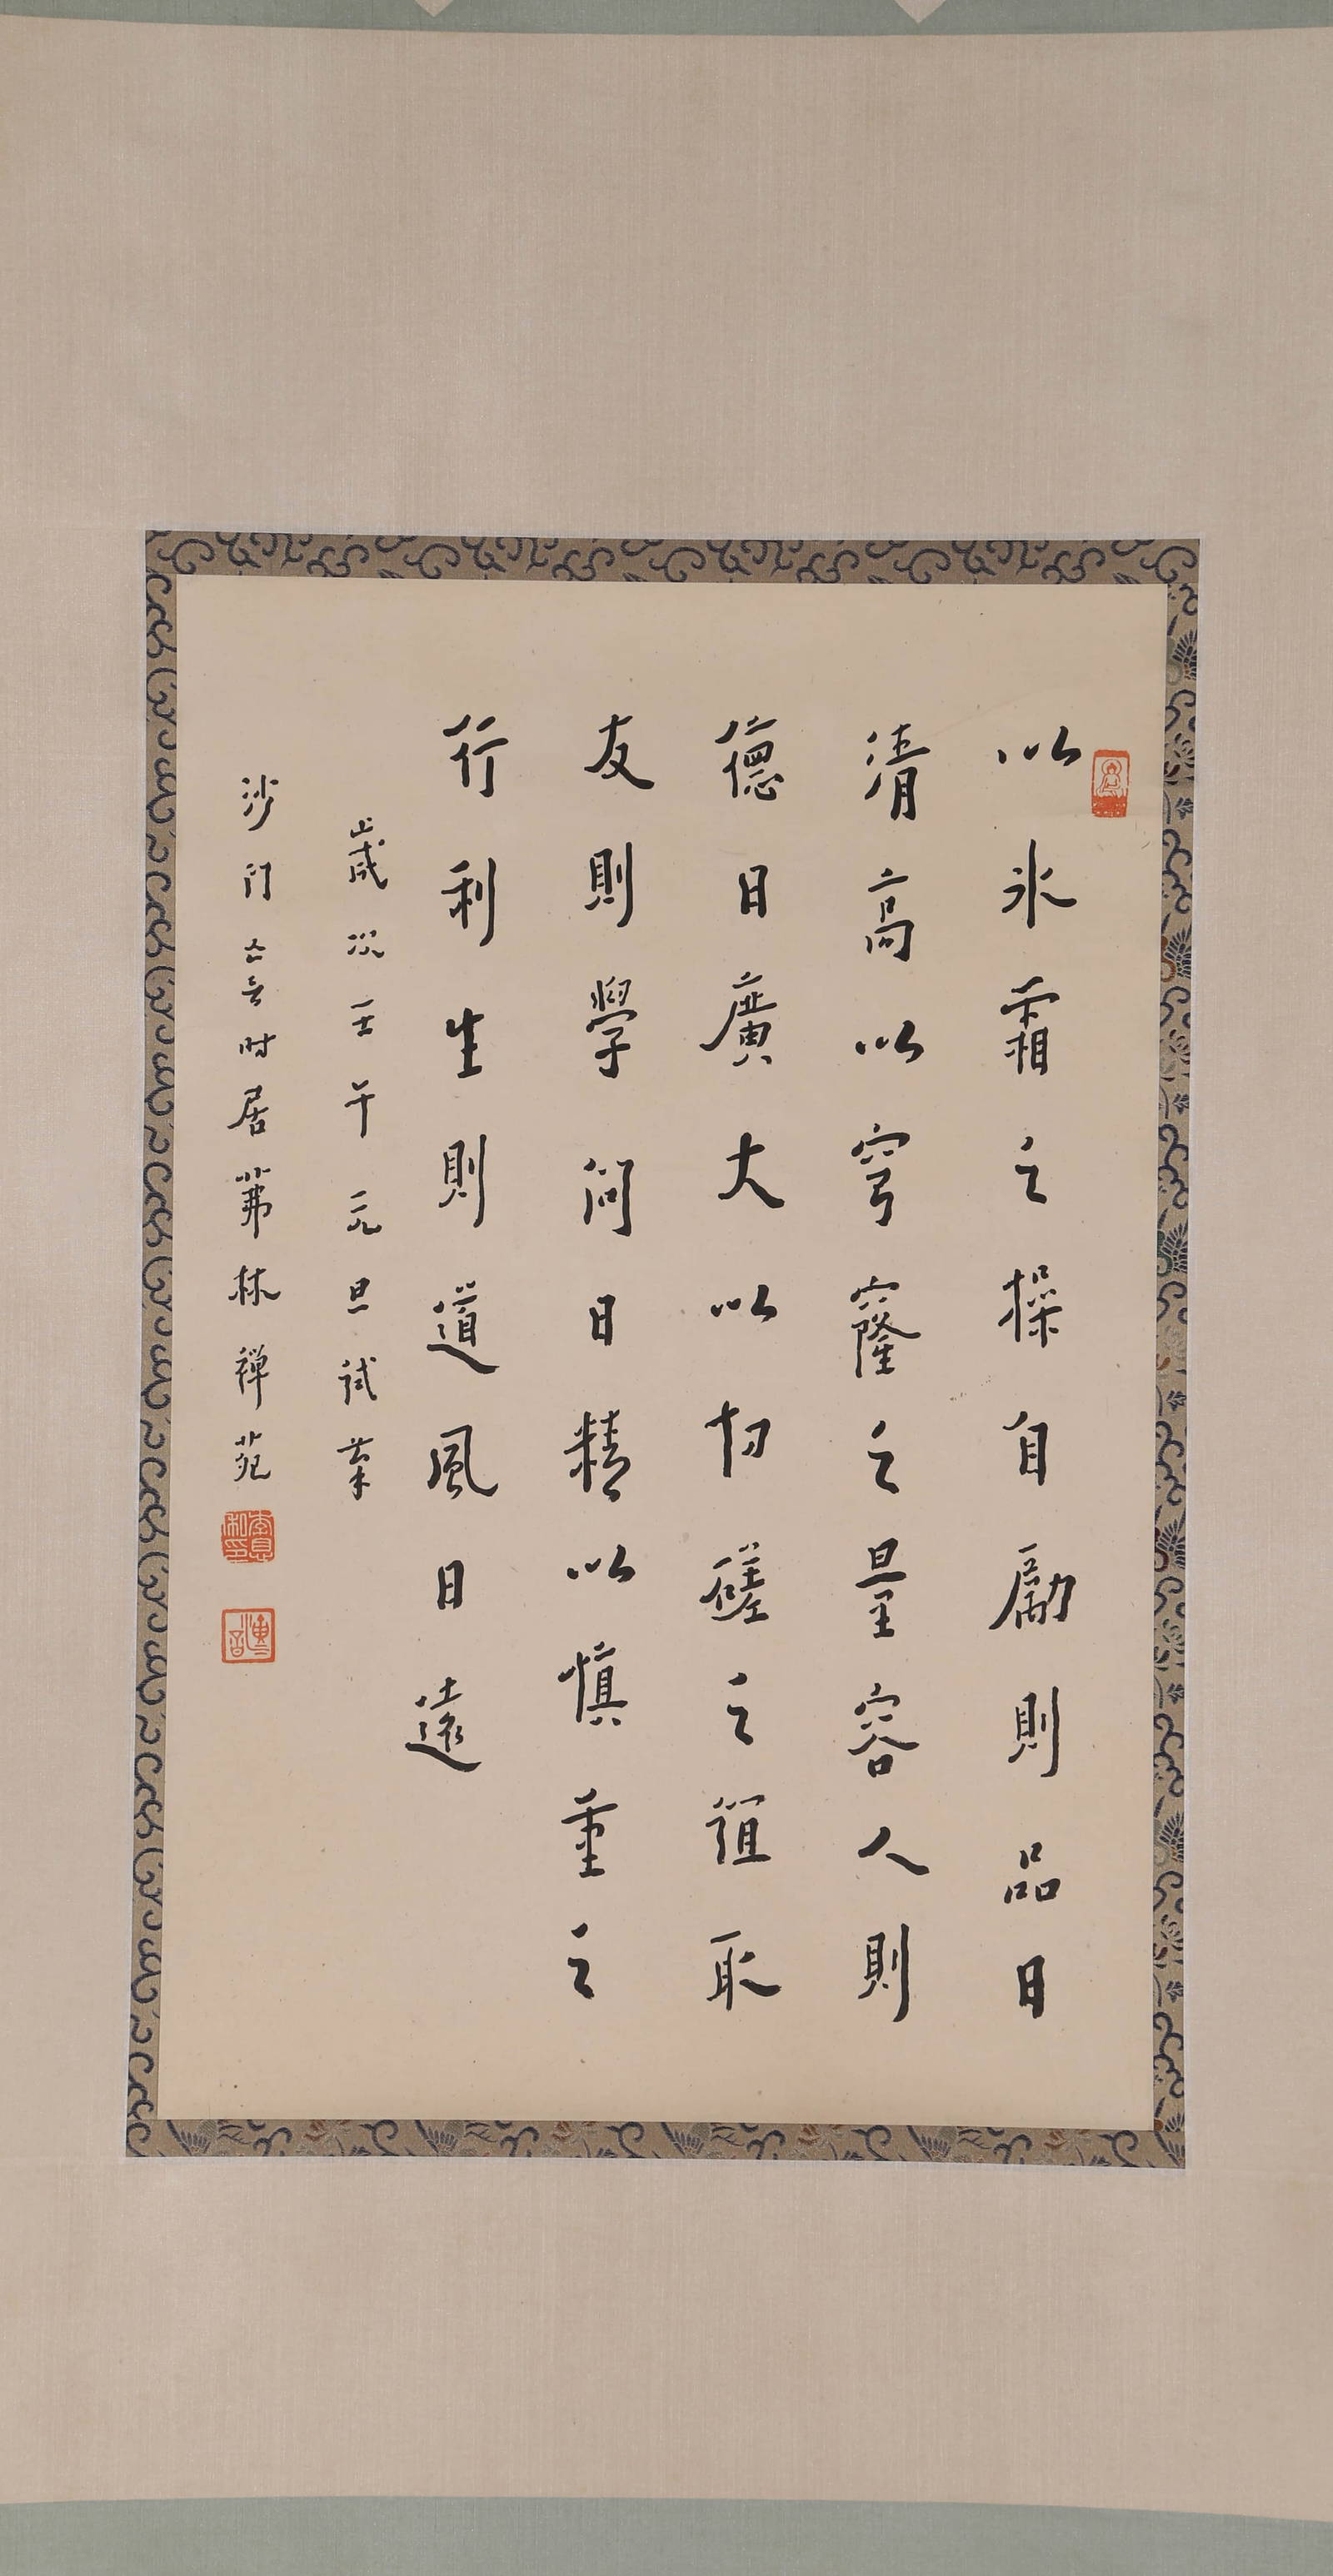 以冰霜之操自勵則品日
清高以穹窿之量容人則
德日廣大以切磋之誼取
友則學問日精以慎重之
行利生則道風日遠
歲次壬午元旦試筆
沙门亡言时居茀林禅苑
李息和印
演音